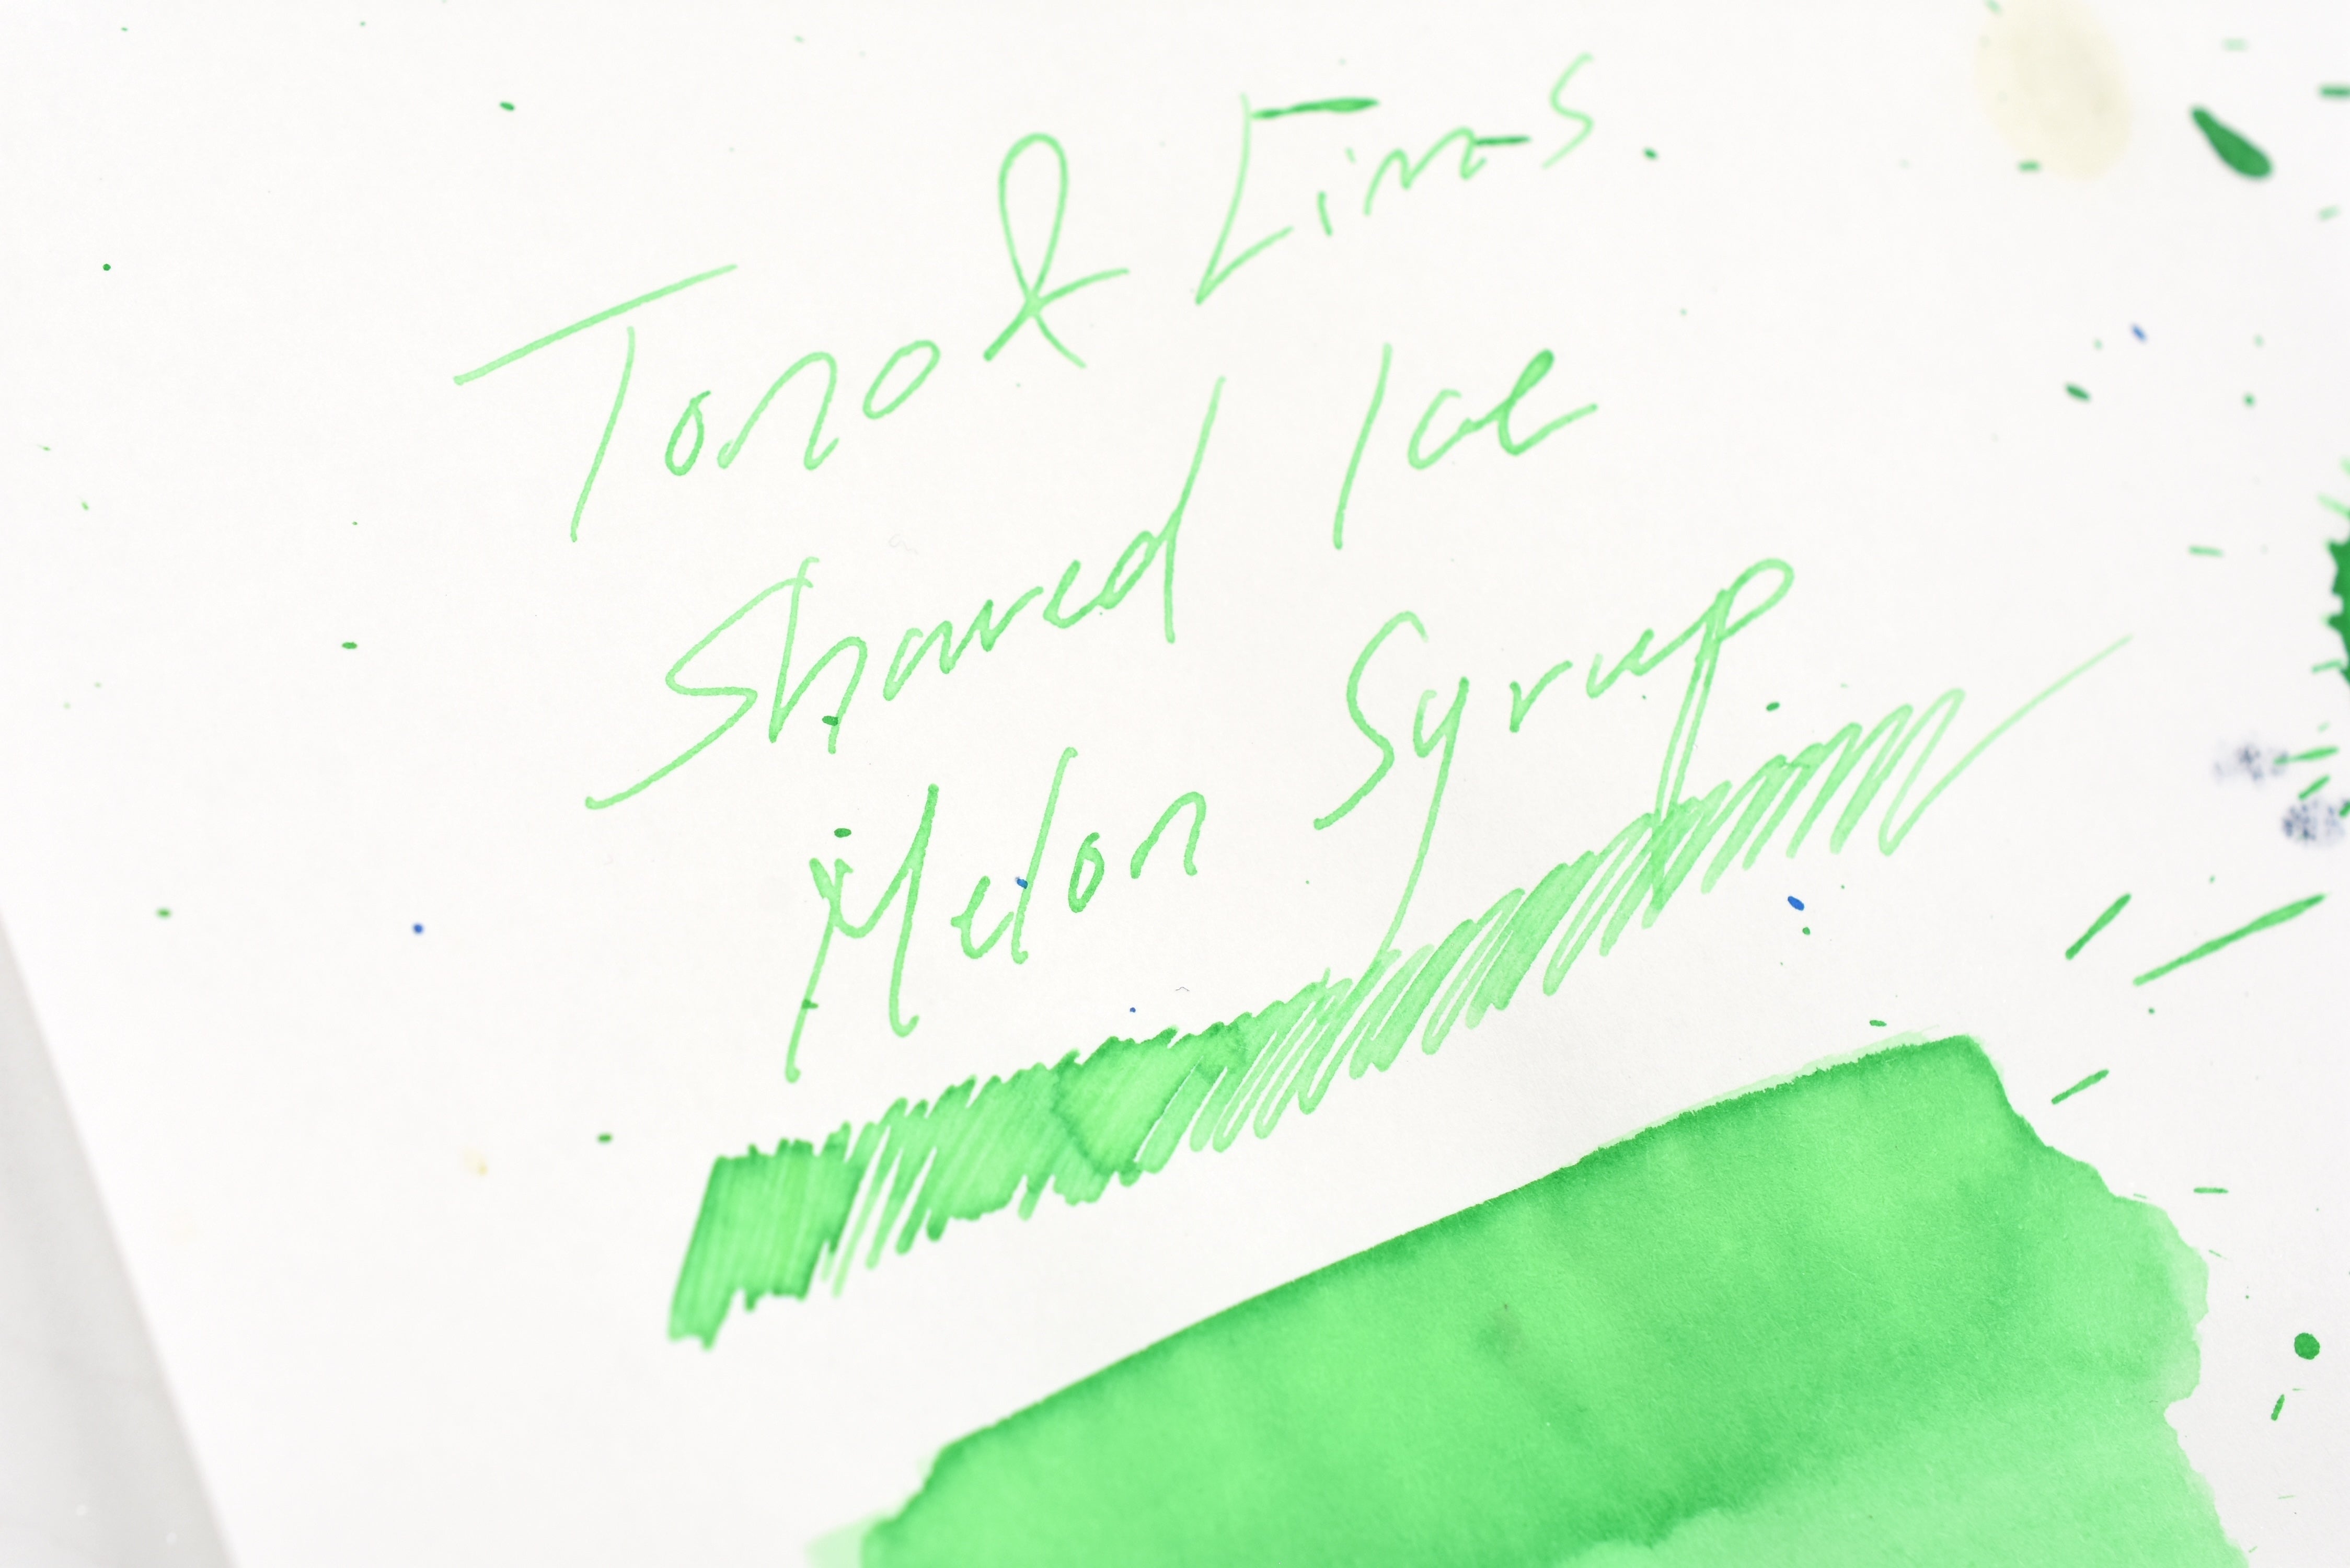 Tono & Lims
Shaved Ice
Melon Syrup